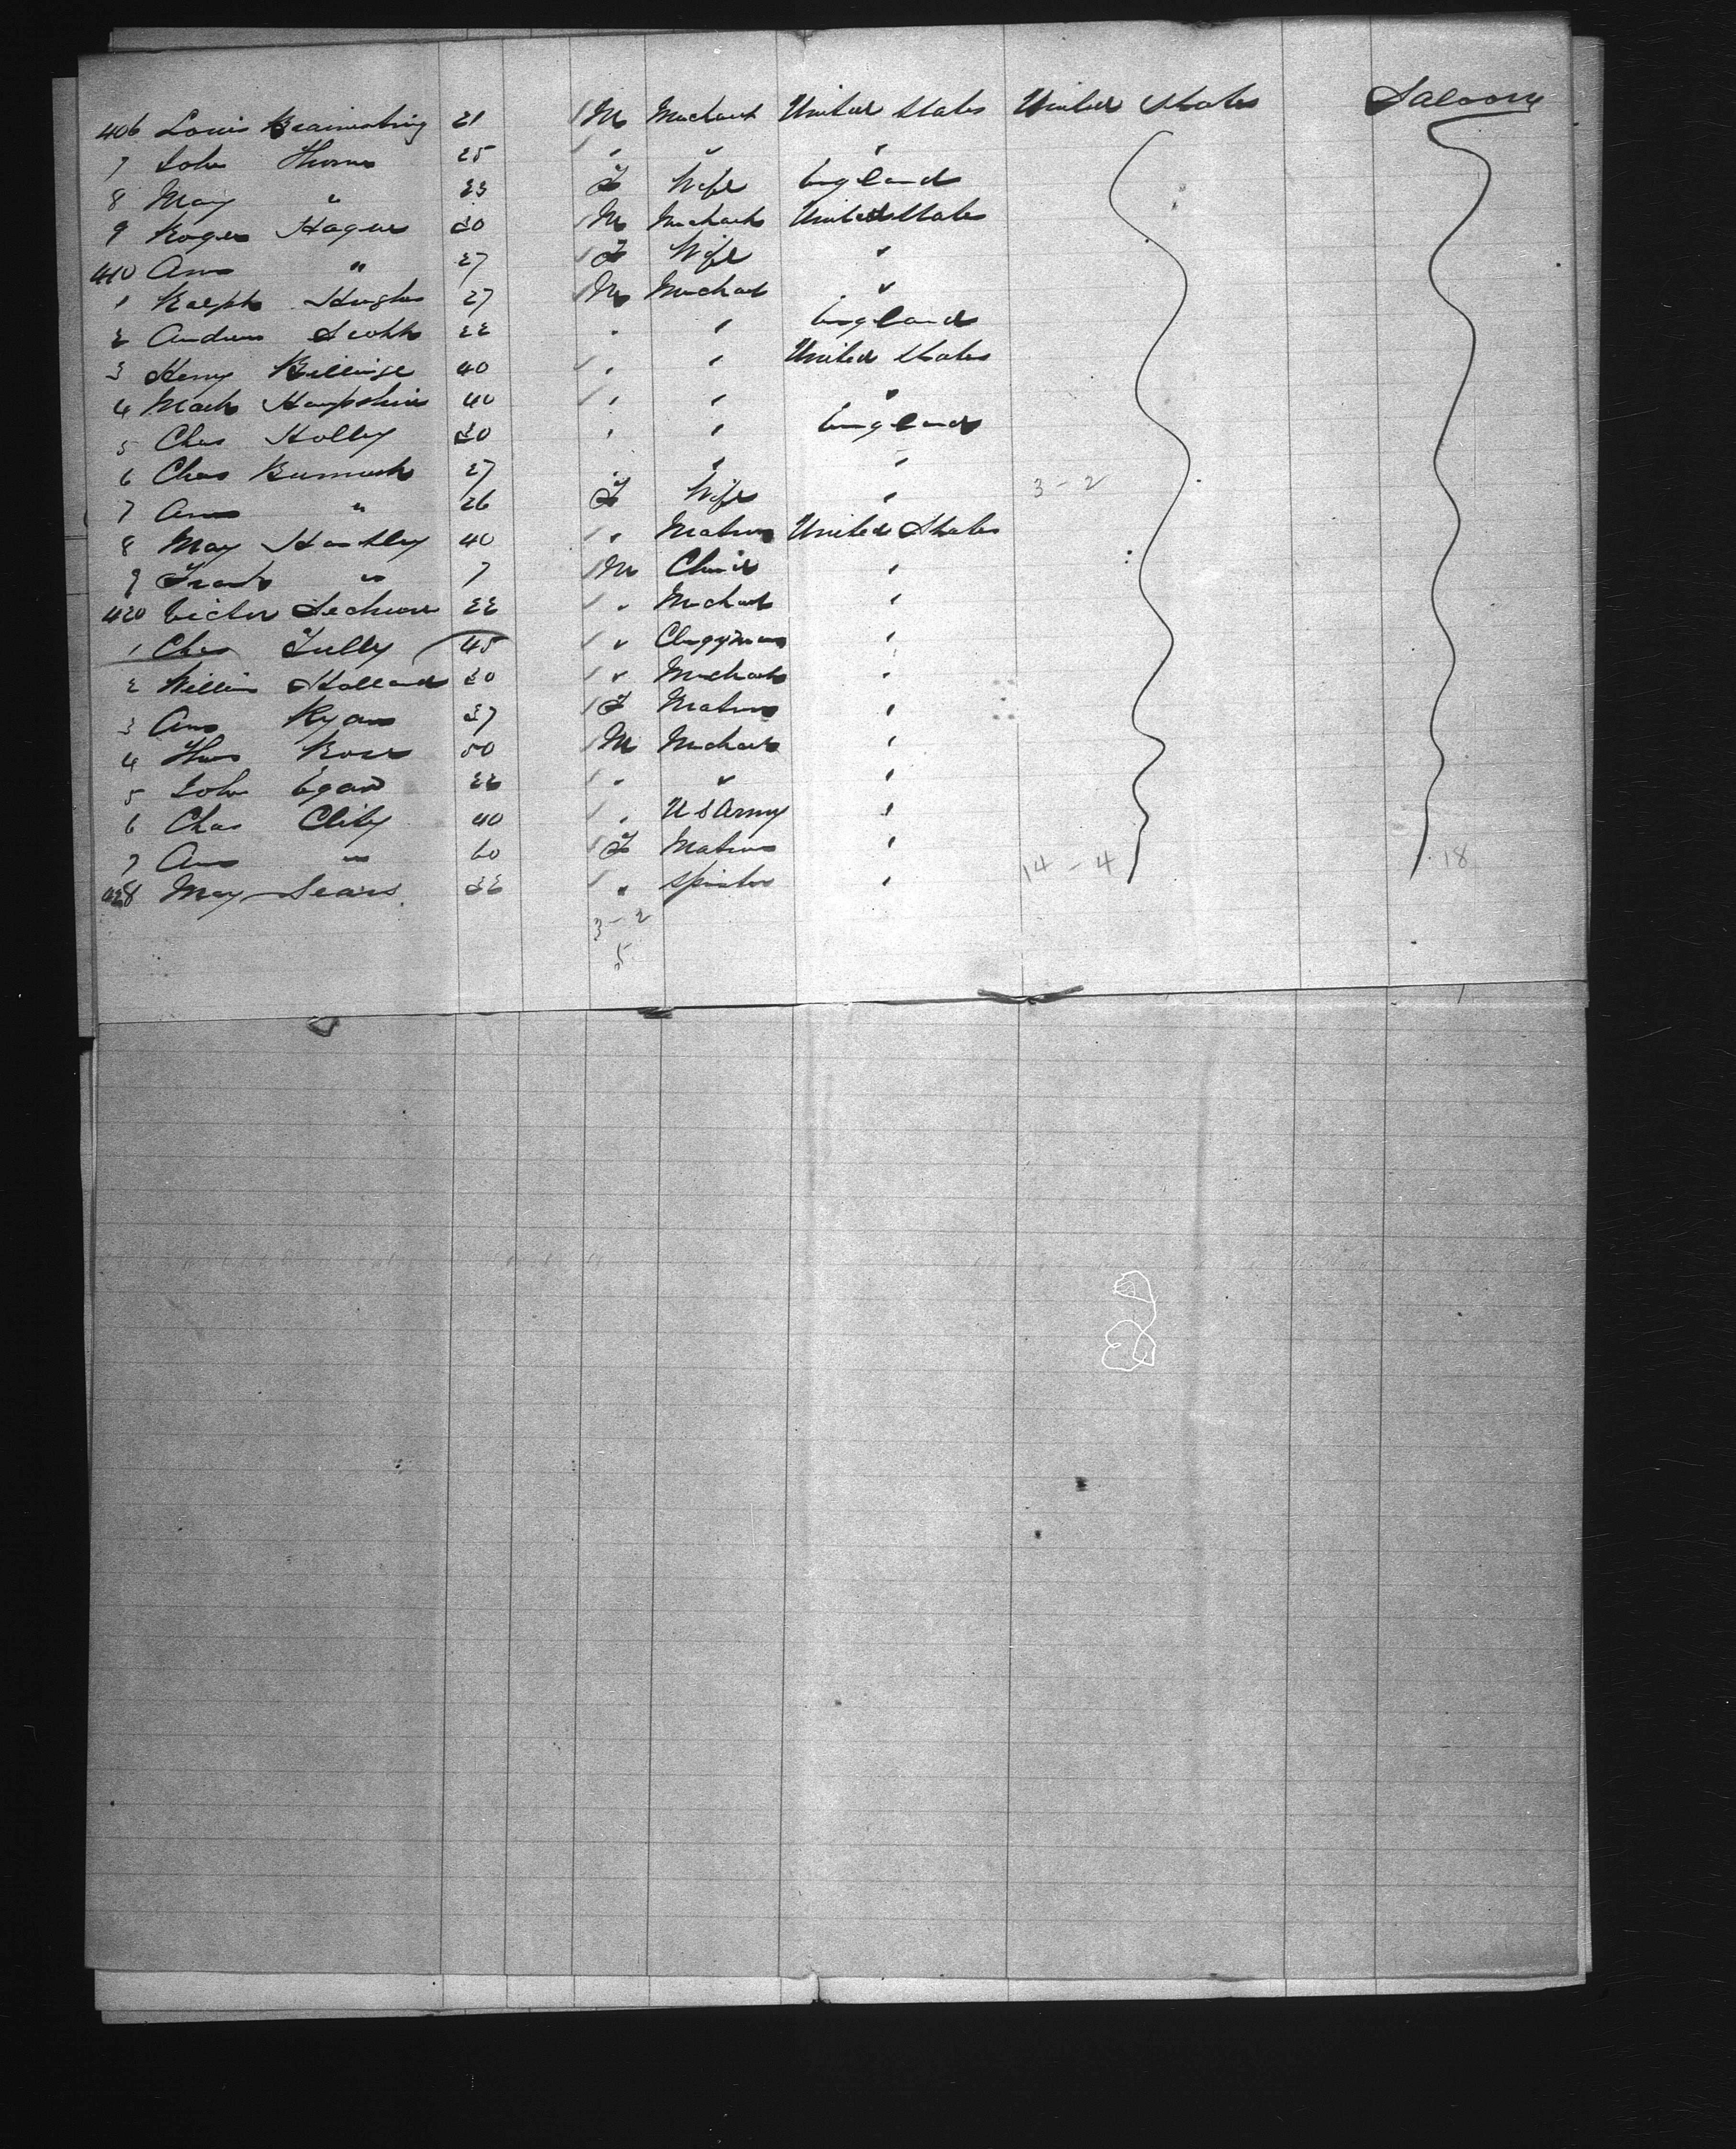 406 Louis 21 M Merchant United States United States Saloon
7 John Thomas 25 " " "
8 Mary " 23 F Wife England
9 Roger Hague 30 M Merchant United States
410 Ann " 27 F Wife "
1 Ralph Hughes 27 M Merchant "
2 Andrew Scott 22 " " England
3 Henry 40 " " United States
4 Mark Hampshire 40 " " "
5 Chas Holley 30 " " England
6 Chas 27 " "
7 Ann " 26 F Wife " 3-2
8 Mary Hartley 40 " Matron United States
9 Frank " 7 M "
420 Victor 22 " Merchant "
1 Chas Tully 45 " Clergyman "
2 William Holland 30 " Merchant "
3 Ann Ryan 37 F Matron "
4 Thos Rose 50 M Merchant "
5 John Egan 22 " " "
6 Chas 40 " U S Army "
7 Ann " 60 F Matron " 14-4 18
428 May Sears 32 " Spinster "
3-2
5